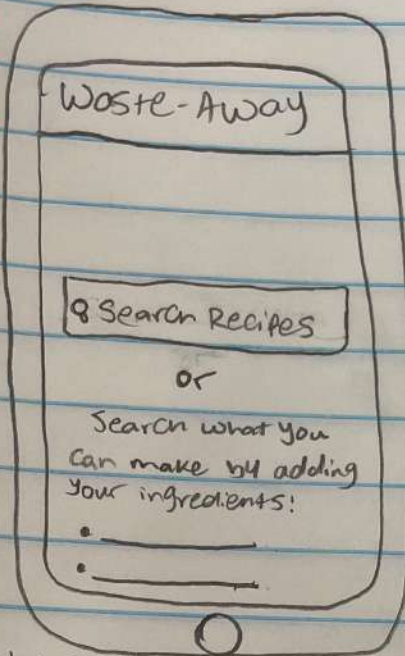 Waste-Away
Search Recipes
or
Search what you
can make by adding
your ingredients!